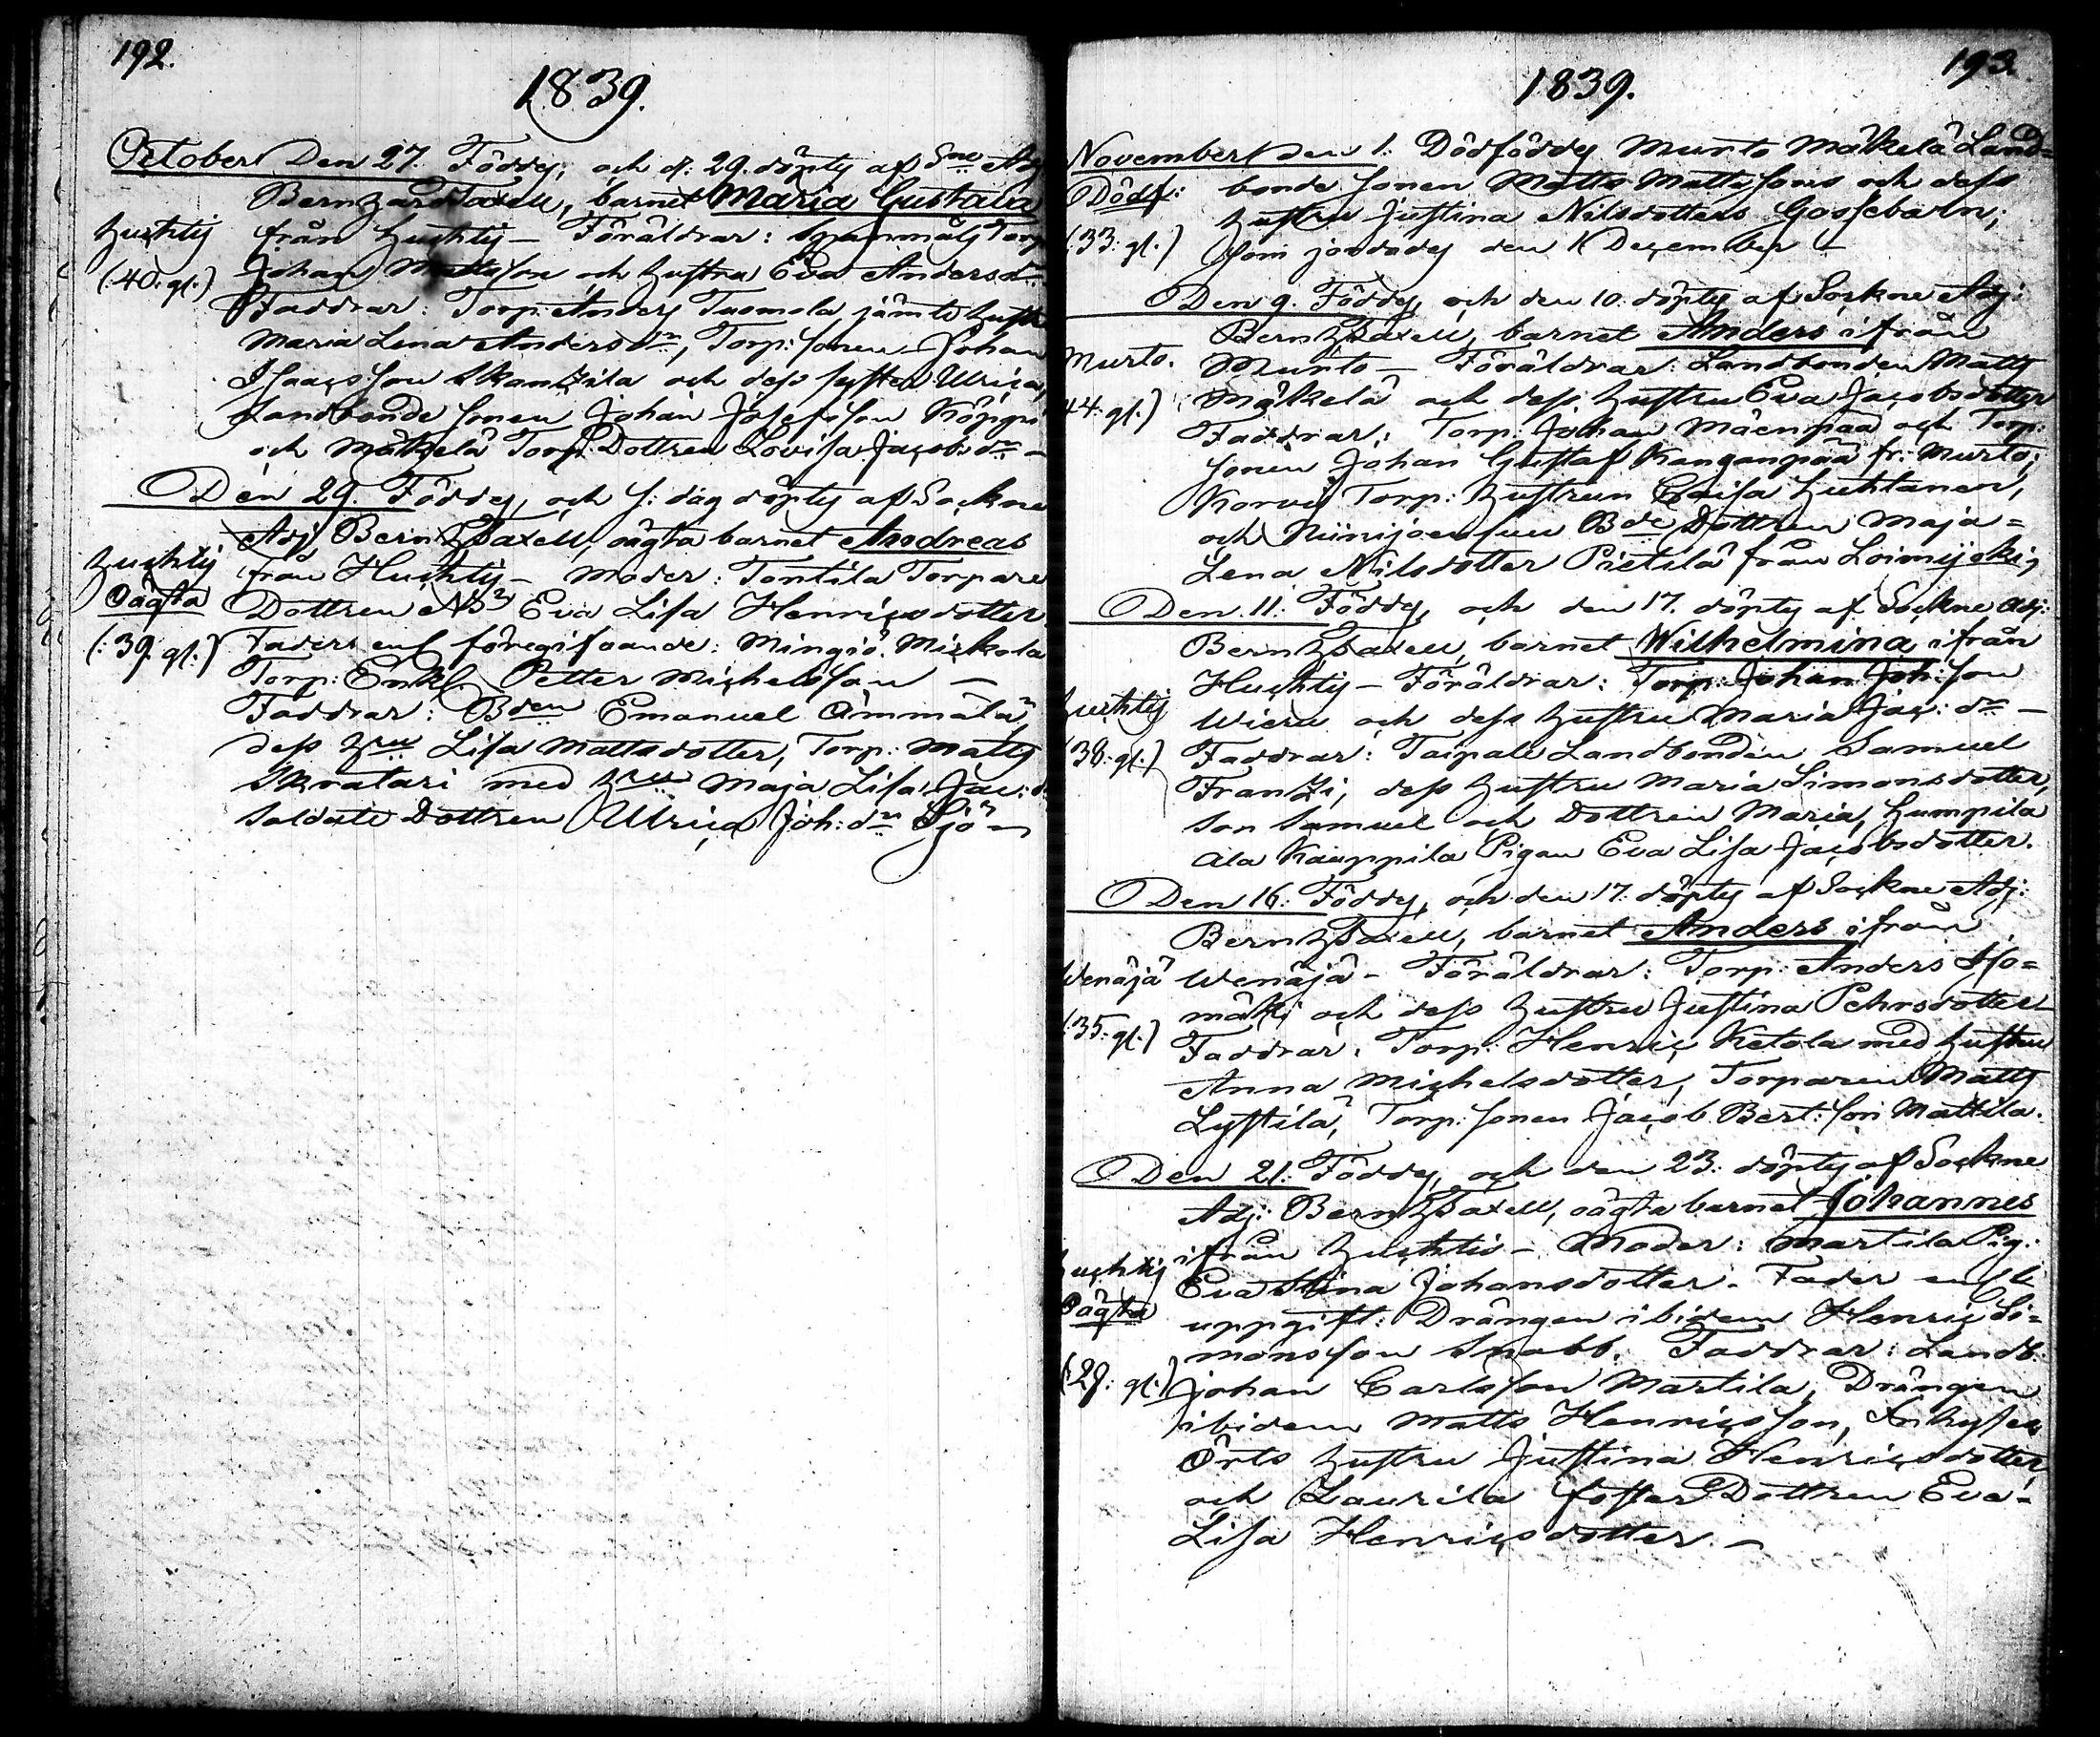 192.
1839.
October Den 27. Föddes, och d: 29. döptes af Sne Adj
Bernhard Taxell, barnet Maria Gustava
Huchtis från Huchtis — Föräldrar: Spannmåls Torp
(:40. gl:) Johan Mattsson och hustru Eva Andersdr
Faddrar: Torp: Anders Tuomola jämte hustru
Maria Lena Andersdr, Torp: sonen Johan
Isaacsson Skanzila och dess syster Ulrica,
Landbonde sonen Johan Josefsson Köppi
och Mäkelä Torp: Dottren Lovisa Jacobsdr —
Den 29. Föddes, och s: dag döptes af Sockne
Adj Bernh Taxell, oägta barnet Andreas
Huchtis från Huchtis — Moder: Tontila Torpare
Oägta Dottren Eva Lisa Henricsdotter
(:39. gl:) Faders enl föregifvande: Mingiö. Mickola
Torp: Enkl. Petter Michelsson —
Faddrar: Bden Emanuel Ämmälä,
dess hru Lisa Mattsdotter, Torp: Matts
Skratari med hru Maja Lisa Jac: d.
Soldate Dottren Ulrica Joh: dr Sjö —
193.
1839.
November Den 1. Dödföddes Murto Mäkelä Land=
Dödf: bonde sonen Matts Mattssons och dess
hustru Justina Nilsdotters Gossebarn;
(:33: gl:) som jordades den 1 December —
Den 9. Föddes, och den 10. döptes af Sockne Adj:
Bernh Taxell, barnet Anders ifrån
Murto. Murto — Föräldrar: Landbonden Matts
44: gl:) Mäkelä och dess hustru Eva Jacobsdotter
Faddrar: Torp: Johan Mäenpää och Torp:
sonen Johan Gustaf Kanganpää fr: Murto;
Korvis Torp: hustrun Caisa Huhtanen,
och Niinijoensuu Bde Dottren Maja=
Lena Nilsdotter Pietilä från Loimijoki;
Den 11: Föddes, och den 17. döptes af Sockne Adj:
Bernh Taxell, barnet Wilhelmina ifrån
Huchtis — Föräldrar: Torp: Johan Joh: son
Huchtis Wieru och dess hustru Maria Jac: dr —
(38: gl:) Faddrar: Taipale Landbonden Samuel
Frantzi, dess hustru Maria Simonsdotter,
Son Samuel och Dottren Maria, Humpila
Ala Kauppila Pigan Eva Lisa Jacobsdotter.
Den 16: Föddes, och den 17. döptes af Sockne Adj:
Bernh Taxell, barnet Anders ifrån
Wenäjä Wenäjä — Föräldrar: Torp: Anders Iso=
mäki och dess hustru Justina Pehrsdotter
(:35: gl:) Faddrar: Torp: Henric Ketola med hustru
Anna Michelsdotter, Torparen Matts
Lystilä, Torp: sonen Jacob Bert: son Mattila.
Den 21: Föddes, och den 23: döptes af Sockne
Adj: Bernh Taxell, oägta barnet Johannes
Huchtis ifrån Huchtis — Moder: Martila Pig:
Eva Stina Johansdotter. Fader enl
Oägta uppgift: Drängen ibidem Henric Si=
monsson Snabb. Faddrar: Landb:
(:29: gl:) Johan Carlsson Martila, Drängen
ibidem Matts Henricsson, Inhyses
Örts hustru Justina Henricsdotter
och Laurila foster Dottren Eva=
Lisa Henricsdotter. —